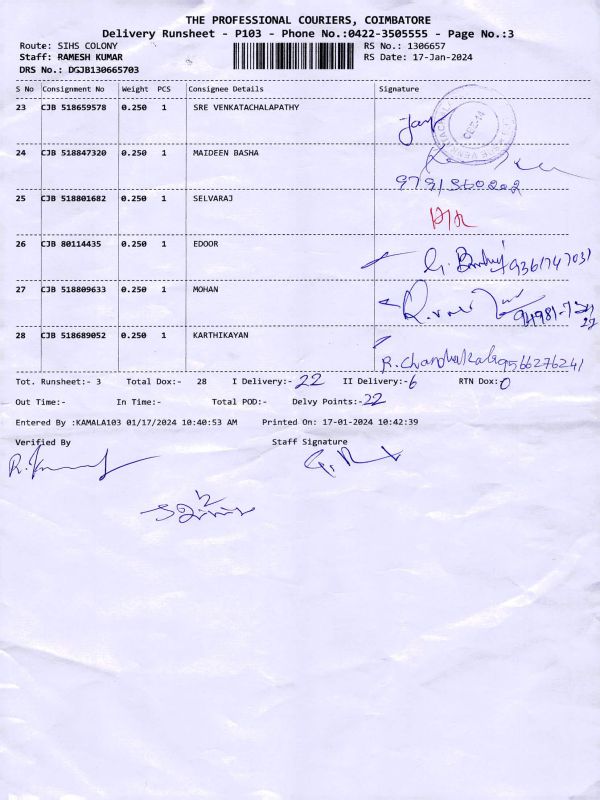 THE PROFESSIONAL COURIERS, COIMBATORE
Delivery Runsheet - P103 - Phone No.:0422-3505555 - Page No.:3
Route: SIHS COLONY RS No.: 1306657
Staff: RAMESH KUMAR RS Date: 17-Jan-2024
DRS No.: DGJB130665703
S No Consignment No Weight PCS Consignee Details Signature
23 CJB 518659578 0.250 1 SRE VENKATACHALAPATHY
24 CJB 518847320 0.250 1 MAIDEEN BASHA
9791560202
25 CJB 518801682 0.250 1 SELVARAJ
26 CJB 80114435 0.250 1 EDOOR 9361747031
27 CJB 518809633 0.250 1 MOHAN
28 CJB 518689052 0.250 1 KARTHIKAYAN
R. Chandrakala 9566276241
Tot. Runsheet:- 3 Total Dox:- 28 I Delivery:- 22 II Delivery:- 6 RTN Dox:- 0
Out Time:- In Time:- Total POD:- Delvy Points:- 22
Entered By :KAMALA103 01/17/2024 10:40:53 AM Printed On: 17-01-2024 10:42:39
Verified By Staff Signature